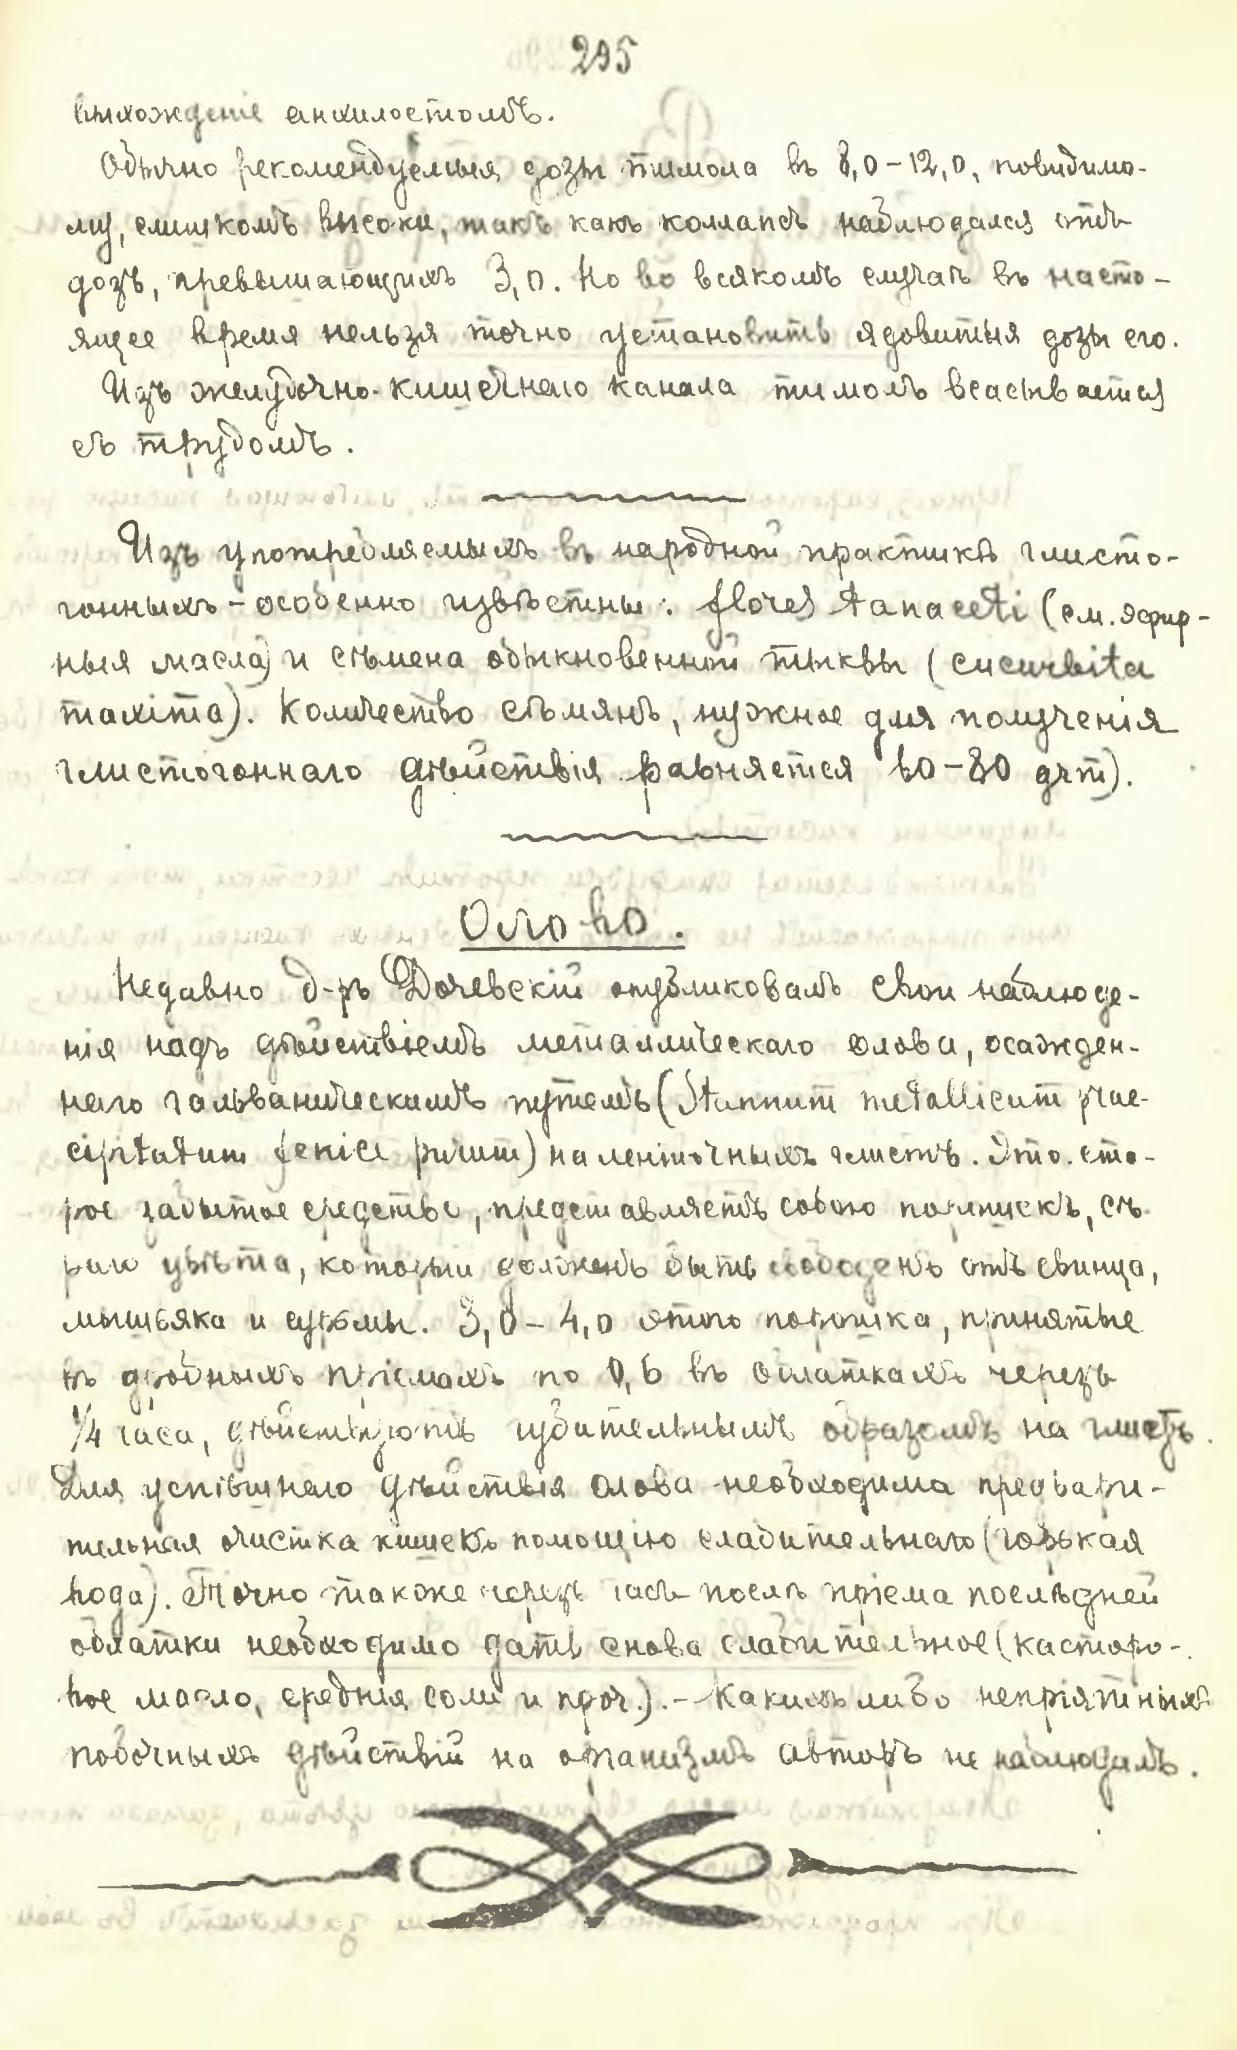 295
выхожденіе анхилостомъ.
Обычно рекомендуемыя дозы тимола въ 8,0-12,0, повидимо-
му, слишкомъ высоки, такъ какъ коллапсъ наблюдался отъ
дозъ, превышающихъ 3,0. Но во всякомъ случаѣ въ насто-
ящее время нельзя точно установить ядовитыя дозы его.
Изъ желудочно-кишечнаго канала тимолъ всасывается
съ трудомъ.
Изъ употребляемыхъ въ народной практикѣ глисто-
гонныхъ - особенно извѣстны: flores tanaceti (см. эфир-
ныя масла) и сѣмена обыкновенной тыквы (cucurbita
maxima). Количество сѣмянъ, нужное для полученія
глистогоннаго дѣйствія равняется 60-80 
Олово.
Недавно д-ръ опубликовалъ свои наблюде-
нія надъ дѣйствіемъ металлическаго олова, осажден-
наго гальваническимъ путемъ (Stannum metallicum prae-
cipitatum purum) на ленточныхъ глистъ. Это ста-
рое забытое средство, представляетъ собою порошекъ, сѣ-
раго цвѣта, который долженъ быть свободенъ отъ свинца,
мышьяка и сурьмы. 3,0-4,0 этого порошка, принятые
въ дробныхъ пріемахъ по 0,6 въ облаткахъ черезъ
1/4 часа, дѣйствуютъ губительнымъ образомъ на глистъ.
Для успѣшнаго дѣйствія олова необходима предвари-
тельная очистка кишекъ помощію слабительнаго (горькая
вода). Точно также черезъ часъ послѣ пріема послѣдней
облатки необходимо дать снова слабительное (касторо-
вое масло, среднія соли и проч.). - Какихъ либо непріятныхъ
побочныхъ дѣйствій на организмъ авторъ не наблюдалъ.